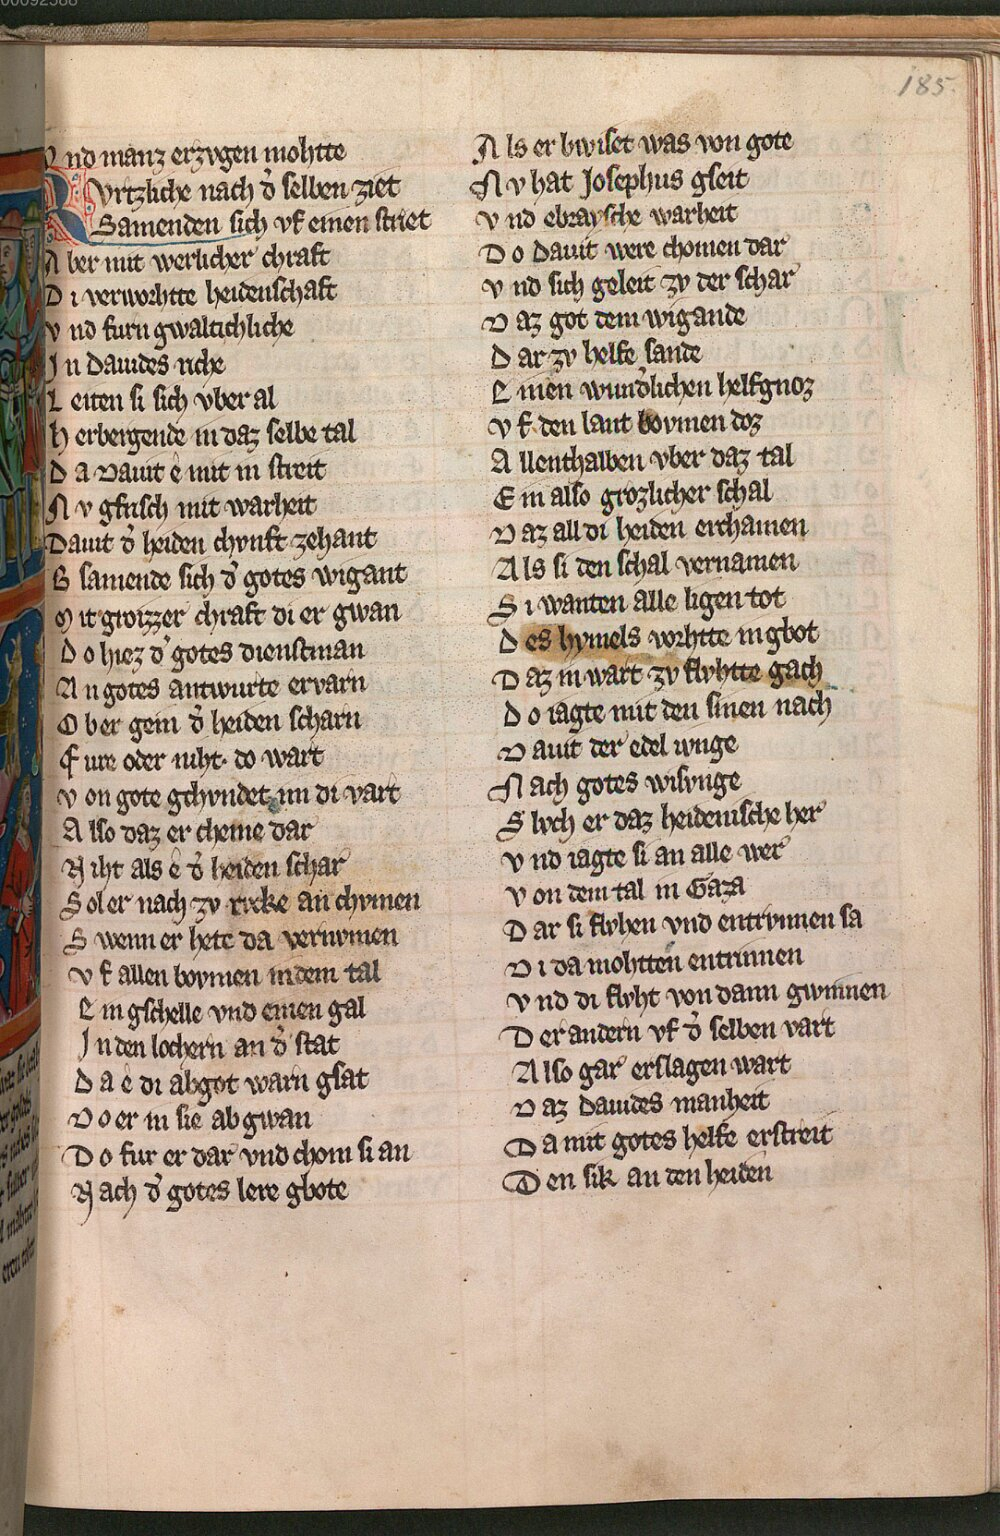 185.
Vnd manz erzvgen mohtte
Kvrtzliche nach d̄ selben ziet
Samenden sich vf einen striet
Aber mit werlicher chraft
Di verworhtte heidenschaft
Vnd furn gwaltichliche
In Dauides riche
Leiten si sich vber al
Herbergende in daz selbe tal
Da Dauit ê mit in streit
Nv gfrisch mit warheit
Dauit d̄ heiden chvnft zehant
B samende sich d̄ gotes wigant
Mit groizzer chraft di er gwan
Do hiez d̄ gotes dienstman
An gotes antwurte ervarn
Ober gein d̄ heiden scharn
Fure oder niht. do wart
Von gote gchvndet im di vart
Also daz er cheme dar
Niht als ê d̄ heiden schar
Soler nach zv rvcke an chvmen
Swenn er hete da vernvmen
Vf allen bovmen in dem tal
Ein gschelle vnd einen gal
In den lochern an d̄ stat
Da ê di abgot warn gsat
Do er in sie ab gwan
Do fur er dar vnd chom si an
Nach d̄ gotes lere gbote
Als er bwiset was von gote
Nv hat Josephus gseit
Vnd ebraysche warheit
Do Dauit were chomen dar
Vnd sich geleit zv der schar
Daz got dem wigande
Dar zv helfe sande
Einen wund̄lichen helfgnoz
Vf den laut bovmen doz
Allenthalben vber daz tal
Ein also grozlicher schal
Daz all di heiden erchamen
Als si den schal vernamen
Si wanten alle ligen tot
Des hymels vorhtte in gbot
Daz in wart zv flvhtte gach
Do iagte mit den sinen nach
Dauit der edel ivnge
Nach gotes wisvnge
Slvch er daz heidenische her
Vnd iagte si an alle wer
Von dem tal in Gaza
Dar si flvhen vnd entrvnnen sa
Di da mohtten entrinnen
Vnd di flvht von dann gwinnen
Der andern vf d̄ selben vart
Also gar erslagen wart
Daz Dauides manheit
Da mit gotes helfe erstreit
Den sik an den heiden